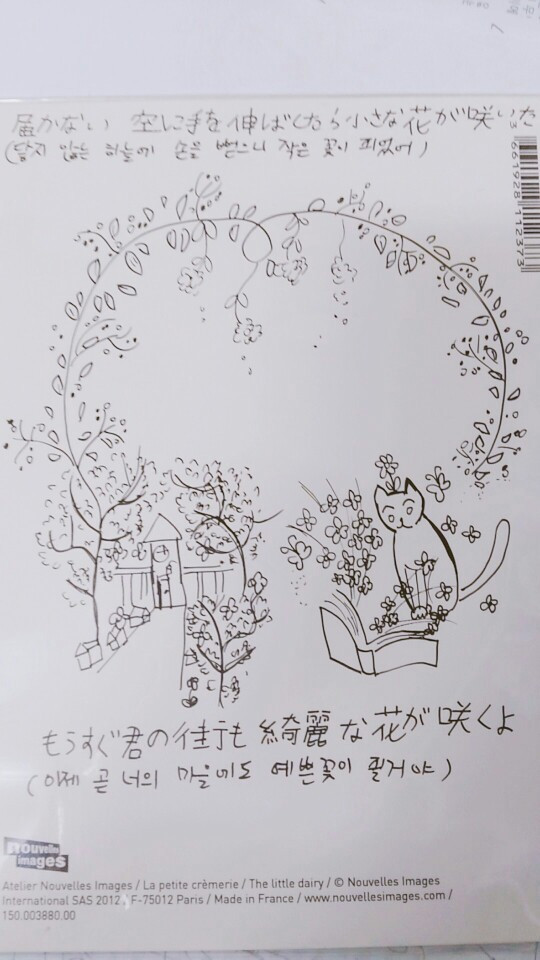 届かない 空に手を伸ばしたら小さな花が咲いた
(닿지 않는 하늘에 손을 뻗으니 작은 꽃이 피었어)
3 661928 112373
もうすぐ君の街も 綺麗な花が咲くよ
(이제 곧 너의 마을에도 예쁜꽃이 필거야)
nouvelles
images
Atelier Nouvelles Images / La petite crèmerie / The little dairy / © Nouvelles Images
International SAS 2012 / F-75012 Paris / Made in France / www.nouvellesimages.com /
150.003880.00